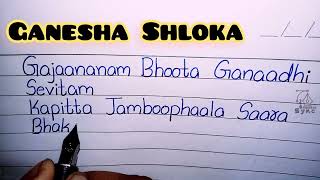 Ganesha Shloka
Gajaananam Bhoota Ganaadhi
Sevitam
Kapitta Jamboophaala Saara
Bhak